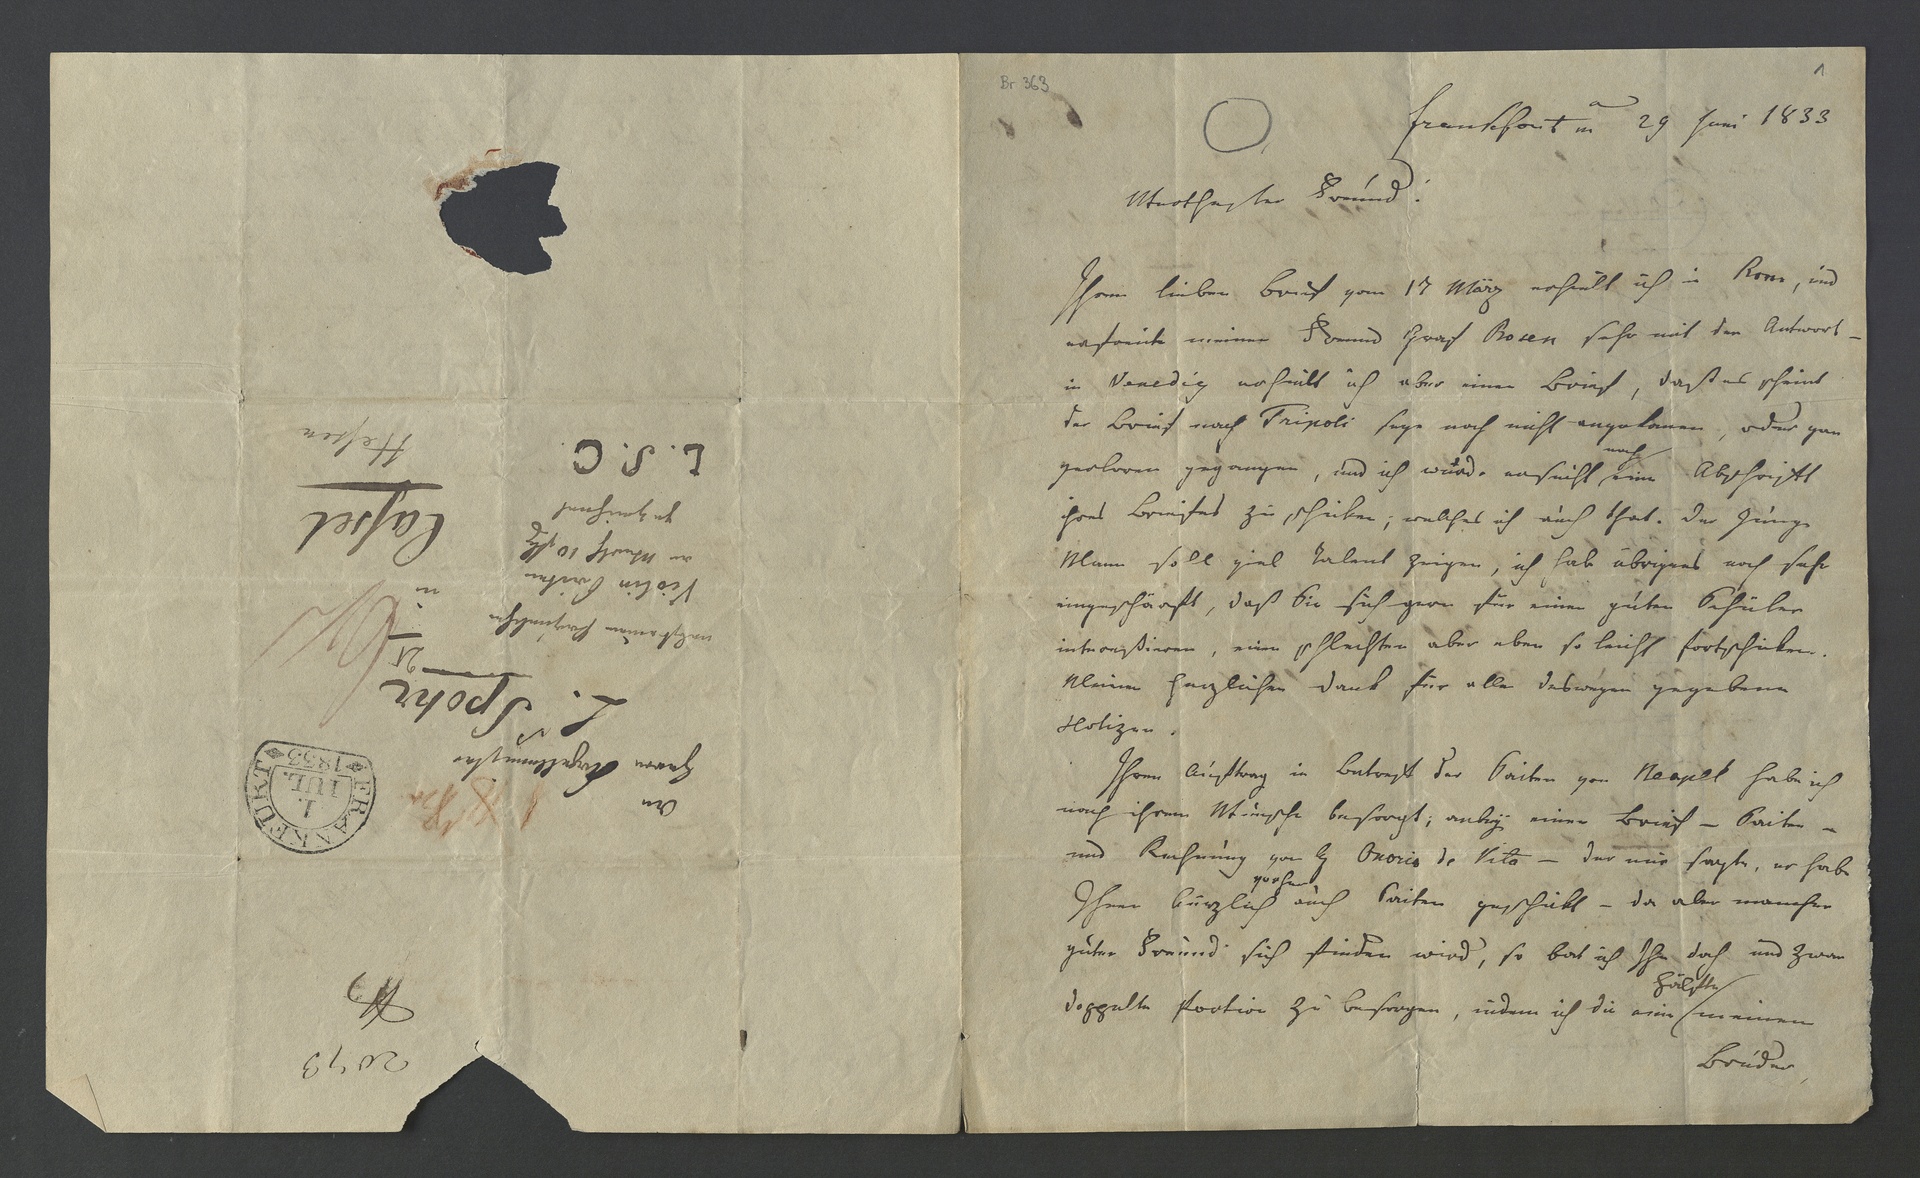 Br 363
1
Frankfurt a/m 29 Juni 1833
Werthester Freund!
Ihren lieben Brief vom 17 März erhielt ich in Rom, und
erfreute meinen Freund Graf Bosen sehr mit der Antwort –
in Venedig erhielt ich aber einen Brief, daß es scheint
der Brief nach Tripoli seye noch nicht angekomen, oder gar
verloren gegangen, und ich wurde ersucht noch eine Abschrift
ihres Briefes zu schicken; welches ich auch that. Der junge
Mann soll viel Talent zeigen, ich hab übrigens noch sehr
eingeschärft, daß Sie sich gern für einen guten Schüler
interessieren, einen schlechten aber eben so leicht fortschicken.
Meinen herzlichen Dank für alle deswegen gegebene
Notizen.
Ihren Auftrag in Betreff der Saiten von Neapel habe ich
nach ihrem Wunsche besorgt; anbey einen Brief – Saiten –
und Rechnung von Onorio de Vita – der mir sagte, er habe
Ihnen kürzlich vorher auch Saiten geschickt – da aber mancher
guter Freund sich finden wird, so bat ich Ihn doch und zwar
doppelte Portion zu besorgen, indem ich die eine Hälfte meinem
Bruder,
An
Herrn Kapellmeister
L. Spohr
in
Cassel
Hessen
Violin Saiten
an Werth 10
gezeichnet
L. S. C.
FRANKFURT
1.
JUL.
1833
2073